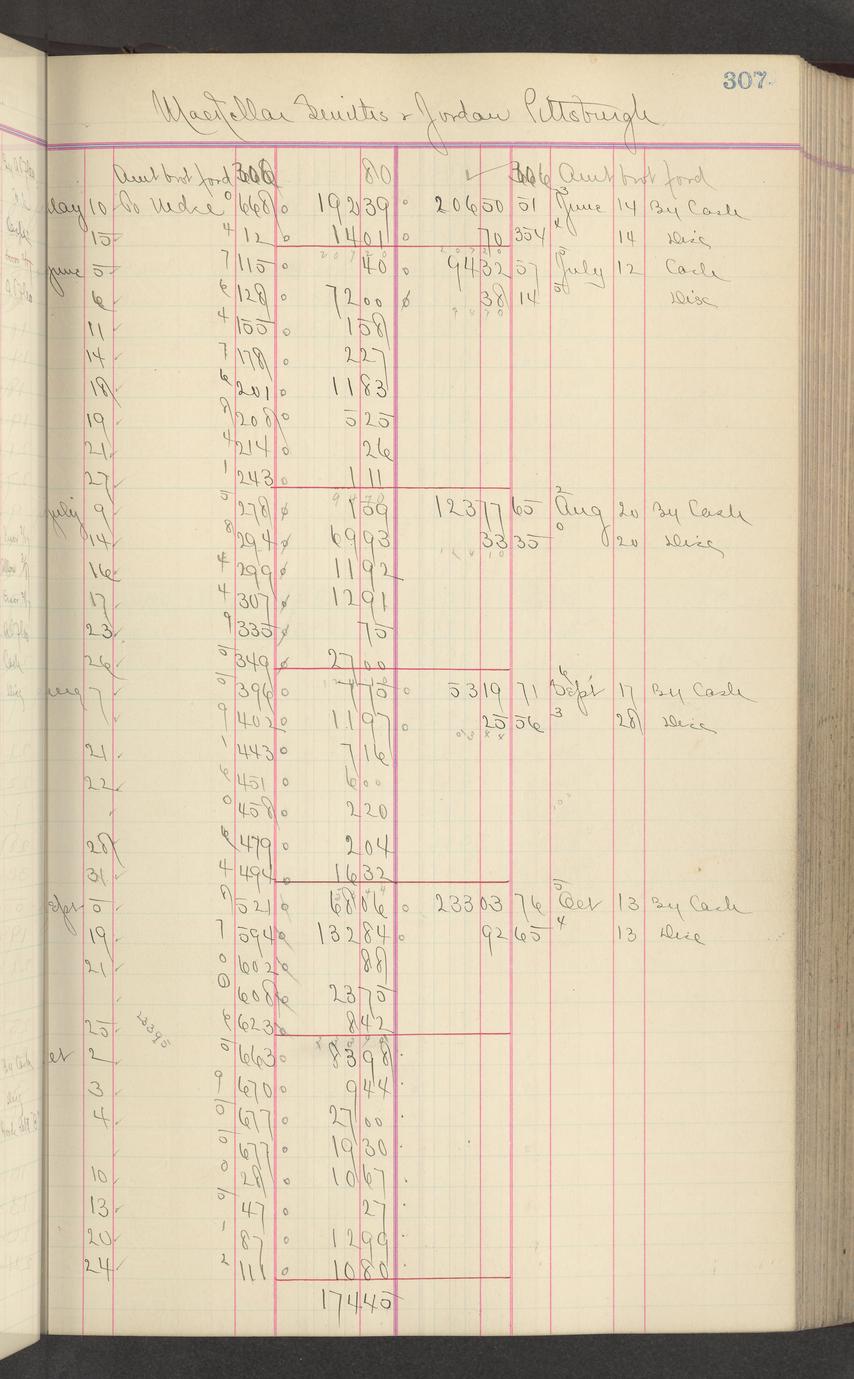 307
MacKellar Smiths & Jordan Pittsburgh
Amt brot ford 306 80 ✓ 306 Amt brot ford
May 10 To Mdse 0 668 192 39 206 50 51 3 June 14 By Cash
15 4 12 14 01 70 354 4 14 Disc
June 5 7 115 40 94 32 57 5 July 12 Cash
6 6 128 72 00 38 14 5 Disc
11 4 155 1 58
14 7 178 2 27
18 6 201 11 83
19 8 208 5 25
21 4 214 26
27 1 243 1 11
July 9 5 278 1 59 123 77 65 2 Aug 20 By Cash
14 8 294 69 93 33 35 0 20 Disc
16 4 299 11 92
17 4 307 12 91
23 9 335 75
26 5 349 27 00
Aug 7 5 396 7 75 53 19 71 6 Sept 17 By Cash
9 402 11 97 25 56 3 28 Disc
21 1 443 7 16
22 6 451 6 00
0 458 2 20
28 6 479 2 04
31 4 494 16 32
Sept 5 8 521 68 06 233 03 76 5 Oct 13 By Cash
19 7 594 132 84 92 65 4 13 Disc
21 0 602 88
0 608 23 75
25 6 623 8 42
23395
et 2 5 663 83 98
3 9 670 9 44
4 5 677 27 00
5 677 19 30
10 0 28 10 67
13 5 47 27
20 1 87 12 99
24 2 111 10 80
174 45